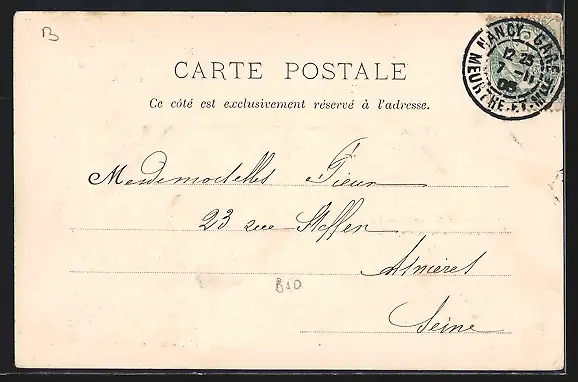 B
NANCY GARE
12 25
05
MEURTHE-ET-M
CARTE POSTALE
Ce côté est exclusivement réservé à l'adresse.
Mesdemoiselles Fieur
23 rue Steffen
Asnières
Seine